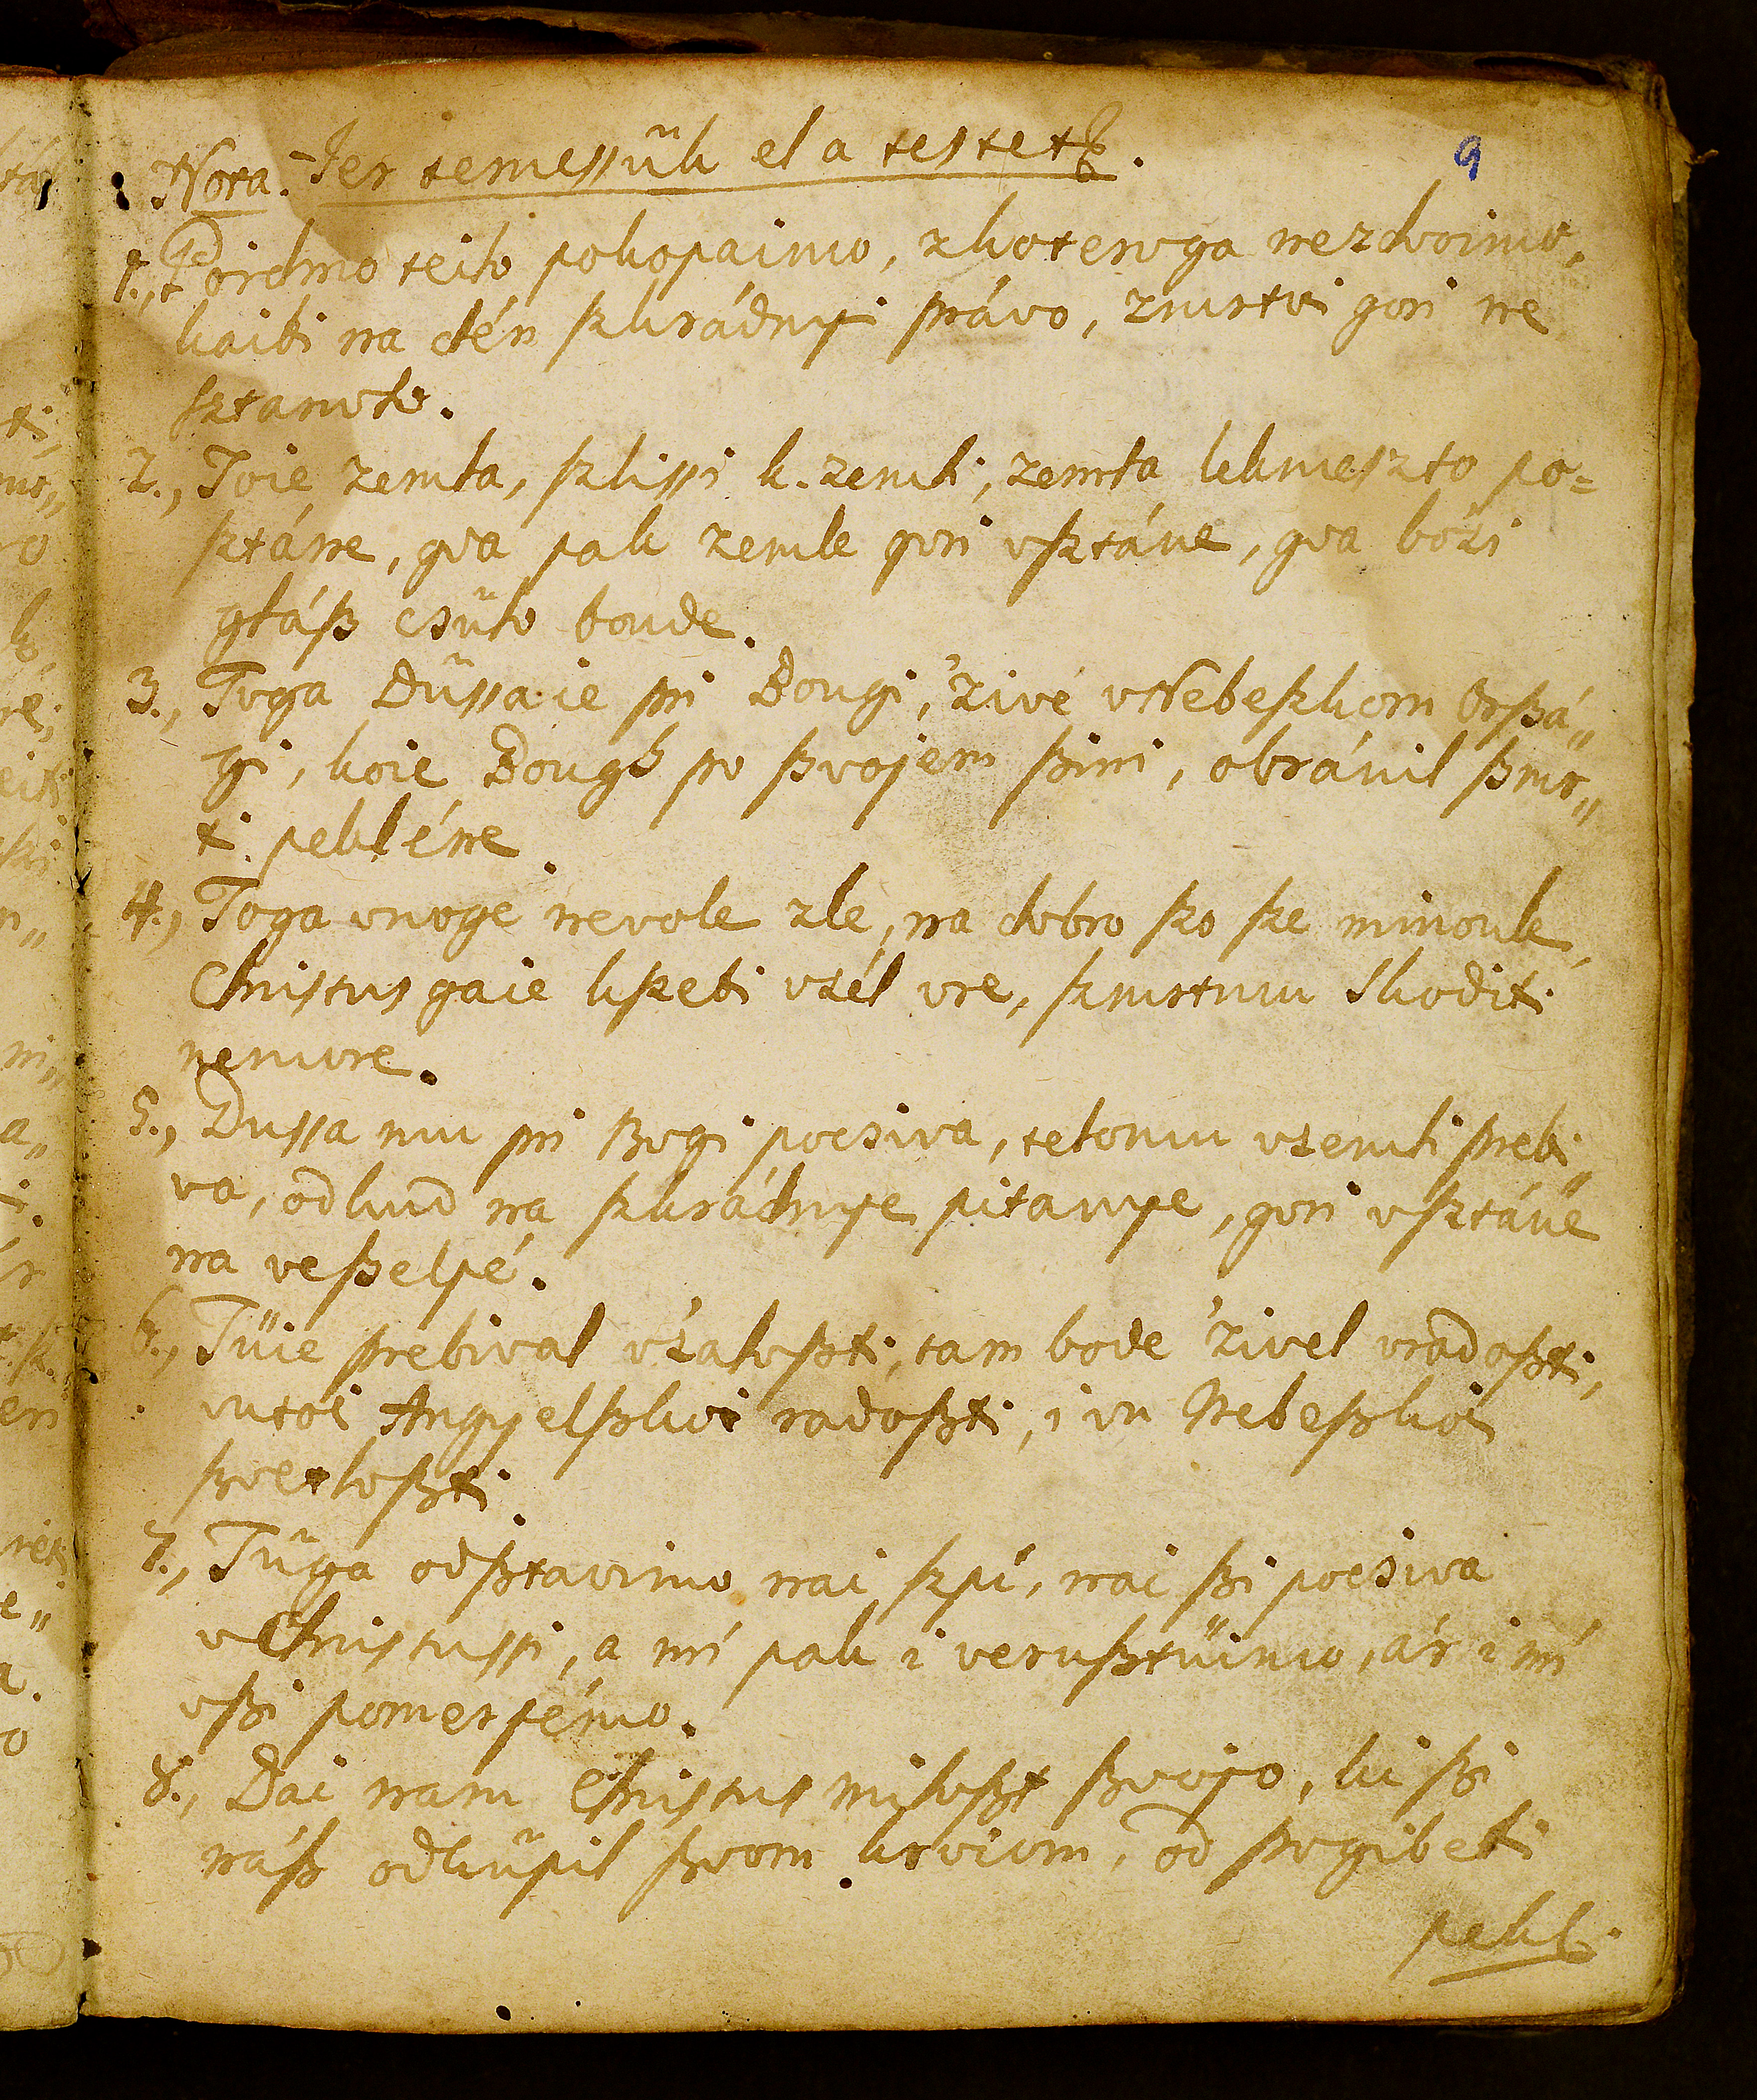 Nota. Jer temessük el a testet.
9
1., Poidmo teilo pokopaimo, zkoteroga nezdvoimo,
kaibi na dén szkrádnyi právo, zmrtvi gori ne
sztanolo.
2., Toie zemla, szlissi k. zemli, zemla kkmeszto po=
sztáne, gda pak zemle gori vsztáne, gda bózi
gláß csülo boude.
3., Toga Düssa ie pri Bougi, 'zivé vNebeszkom Orßá„
gi, koie Bough po ßvojem ßini, obránil ßmr„
ti pekléne.
4., Toga vnoge nevole zle, na dobro szo sze minoule,
Christus gaie kszebi vzél vre, szmrtmu skoditi
nemore.
5., Dussa mu pri Bogi pocsiva, telomu vzemli prebi„
va, odkud na szkrádnye pitanye, gori vsztáne
na veßelyé.
6., Tüie prebival v'saloßti, tam bode 'zivel vradoßti,
vutoi Angyelßkoi radoßti, i vu Nebeßkoi
ßvetloßti.
7., Tüga odßtavimo nai szpí, nai ßi pocsiva
vChristussi, a mí pak i verußtüimo, ár i mí
vßi pomerjémo.
8., Dai nam Christus miloßt ßvojo, ki ßi
náß odküpil ßvom krviom, od pogibeli
pekli